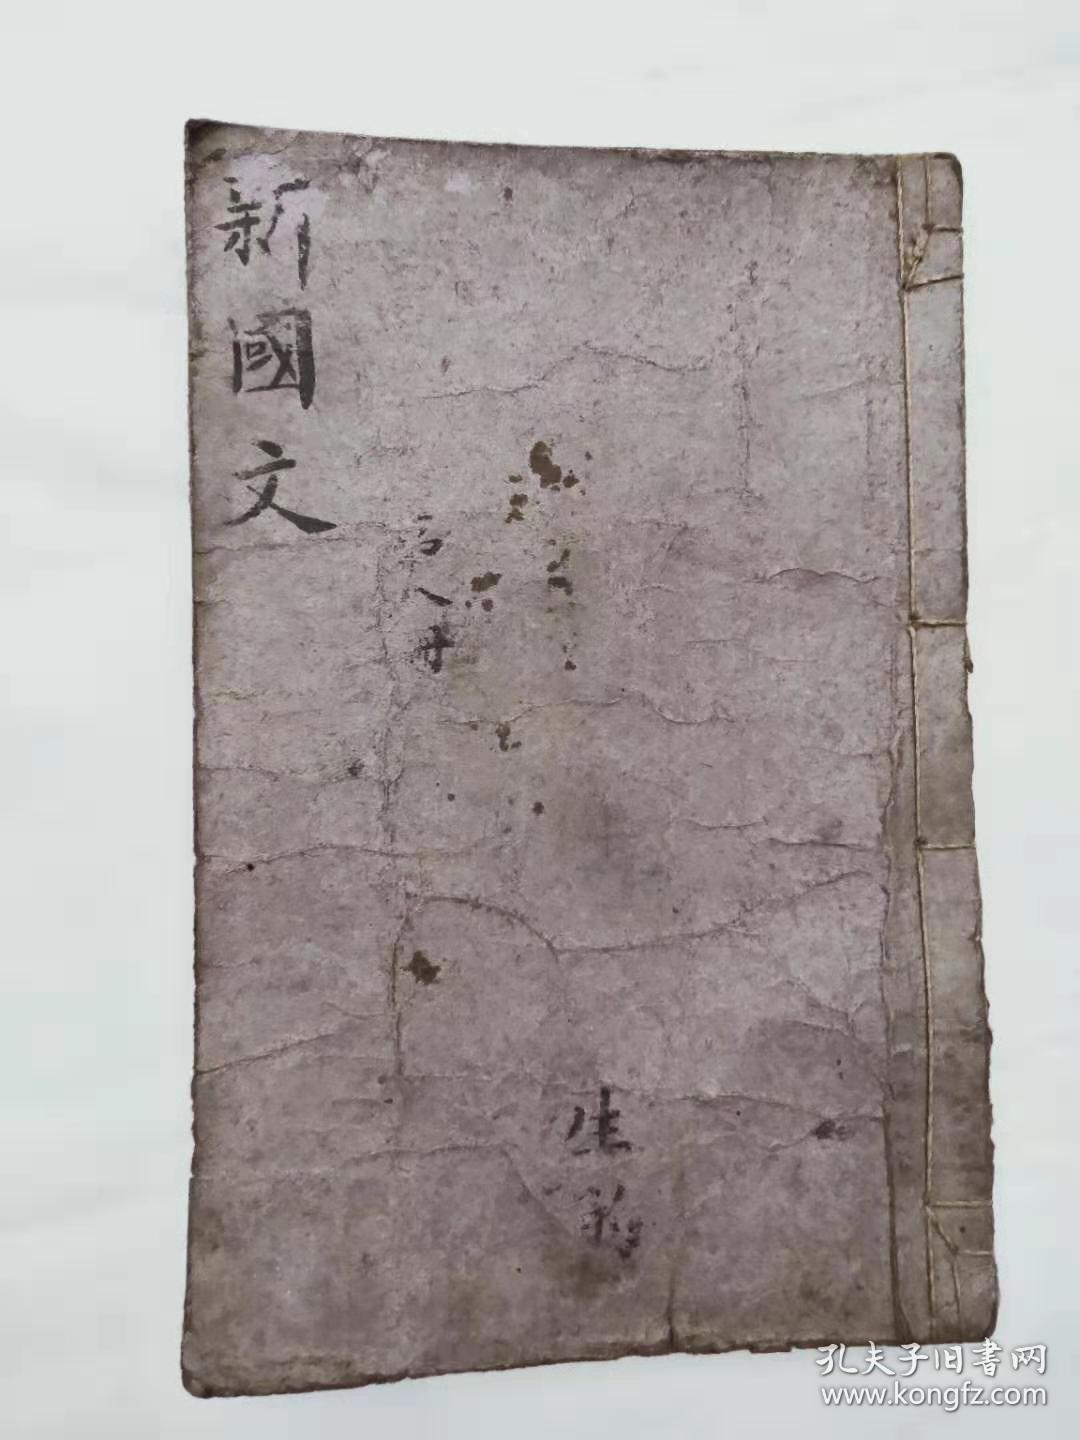 新國文
八冊
生
孔夫子旧書网
www.kongfz.com